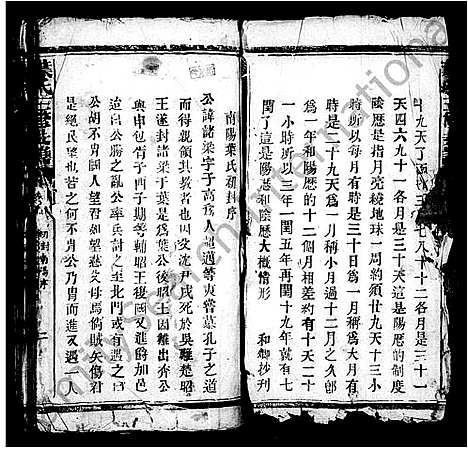 十九天了
七八十十二各月是三十一
天四六九十一各月是三十天這是陽歷的制度
陰歷是指月亮繞地球一周約須廿九天十三小
時所以每月有時是三十日爲一月稱爲大月有
時是二十九天爲一月稱小月過十二月之久卽
爲一年和陽歷的十二個月相差約有十天二十
一小時所以三年一閏五年再閏十九年就有七
閏了這是陽歷和陰歷大概情形
和卿抄刋
南陽葉氏初封序
公諱諸梁字子高爲人適等夷嘗慕孔子之道
而得親領其教者也因父沈尹戌死於吳難楚昭
王遂封諸梁于葉是爲葉公後昭王因難出奔公
與申包胥子西子期等輔昭王復國又進爵加邑
迨出公勝之亂公率兵討之至北門或有遇之曰
公胡不冑國人望君如望慈父母焉倘賊矢傷君
是絕民望也若之何不冑公乃冑而進又遇一人
初封南陽序